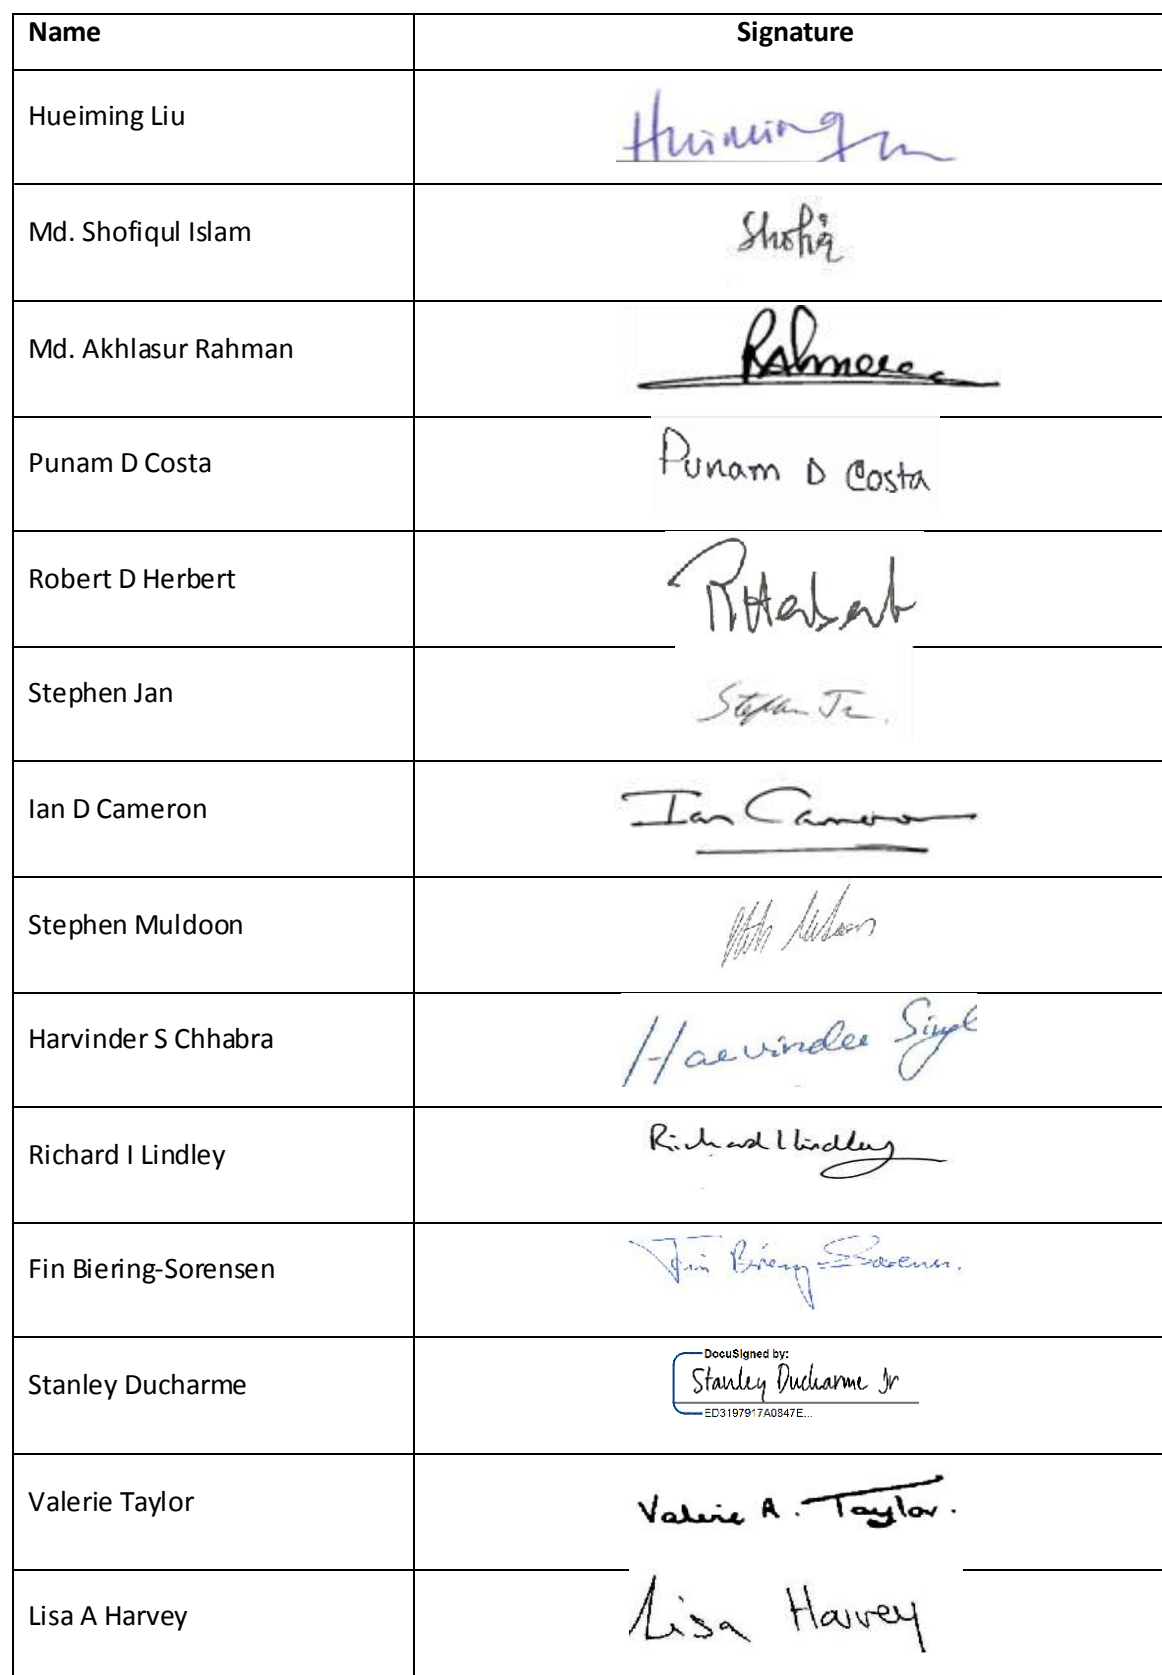 Name Signature
Hueiming Liu Hueiming
Md. Shofiqul Islam Shofiq
Md. Akhlasur Rahman Rahman
Punam D Costa Punam D Costa
Robert D Herbert RHerbert
Stephen Jan Stephen Jan
Ian D Cameron Ian Cameron
Stephen Muldoon Muldoon
Harvinder S Chhabra Harvinder Singh
Richard I Lindley Richard I Lindley
Fin Biering-Sorensen Fin Biering-Sorensen.
DocuSigned by:
Stanley Ducharme Stanley Ducharme Jr
ED3197917A0847E...
Valerie Taylor Valerie A. Taylor.
Lisa A Harvey Lisa Harvey